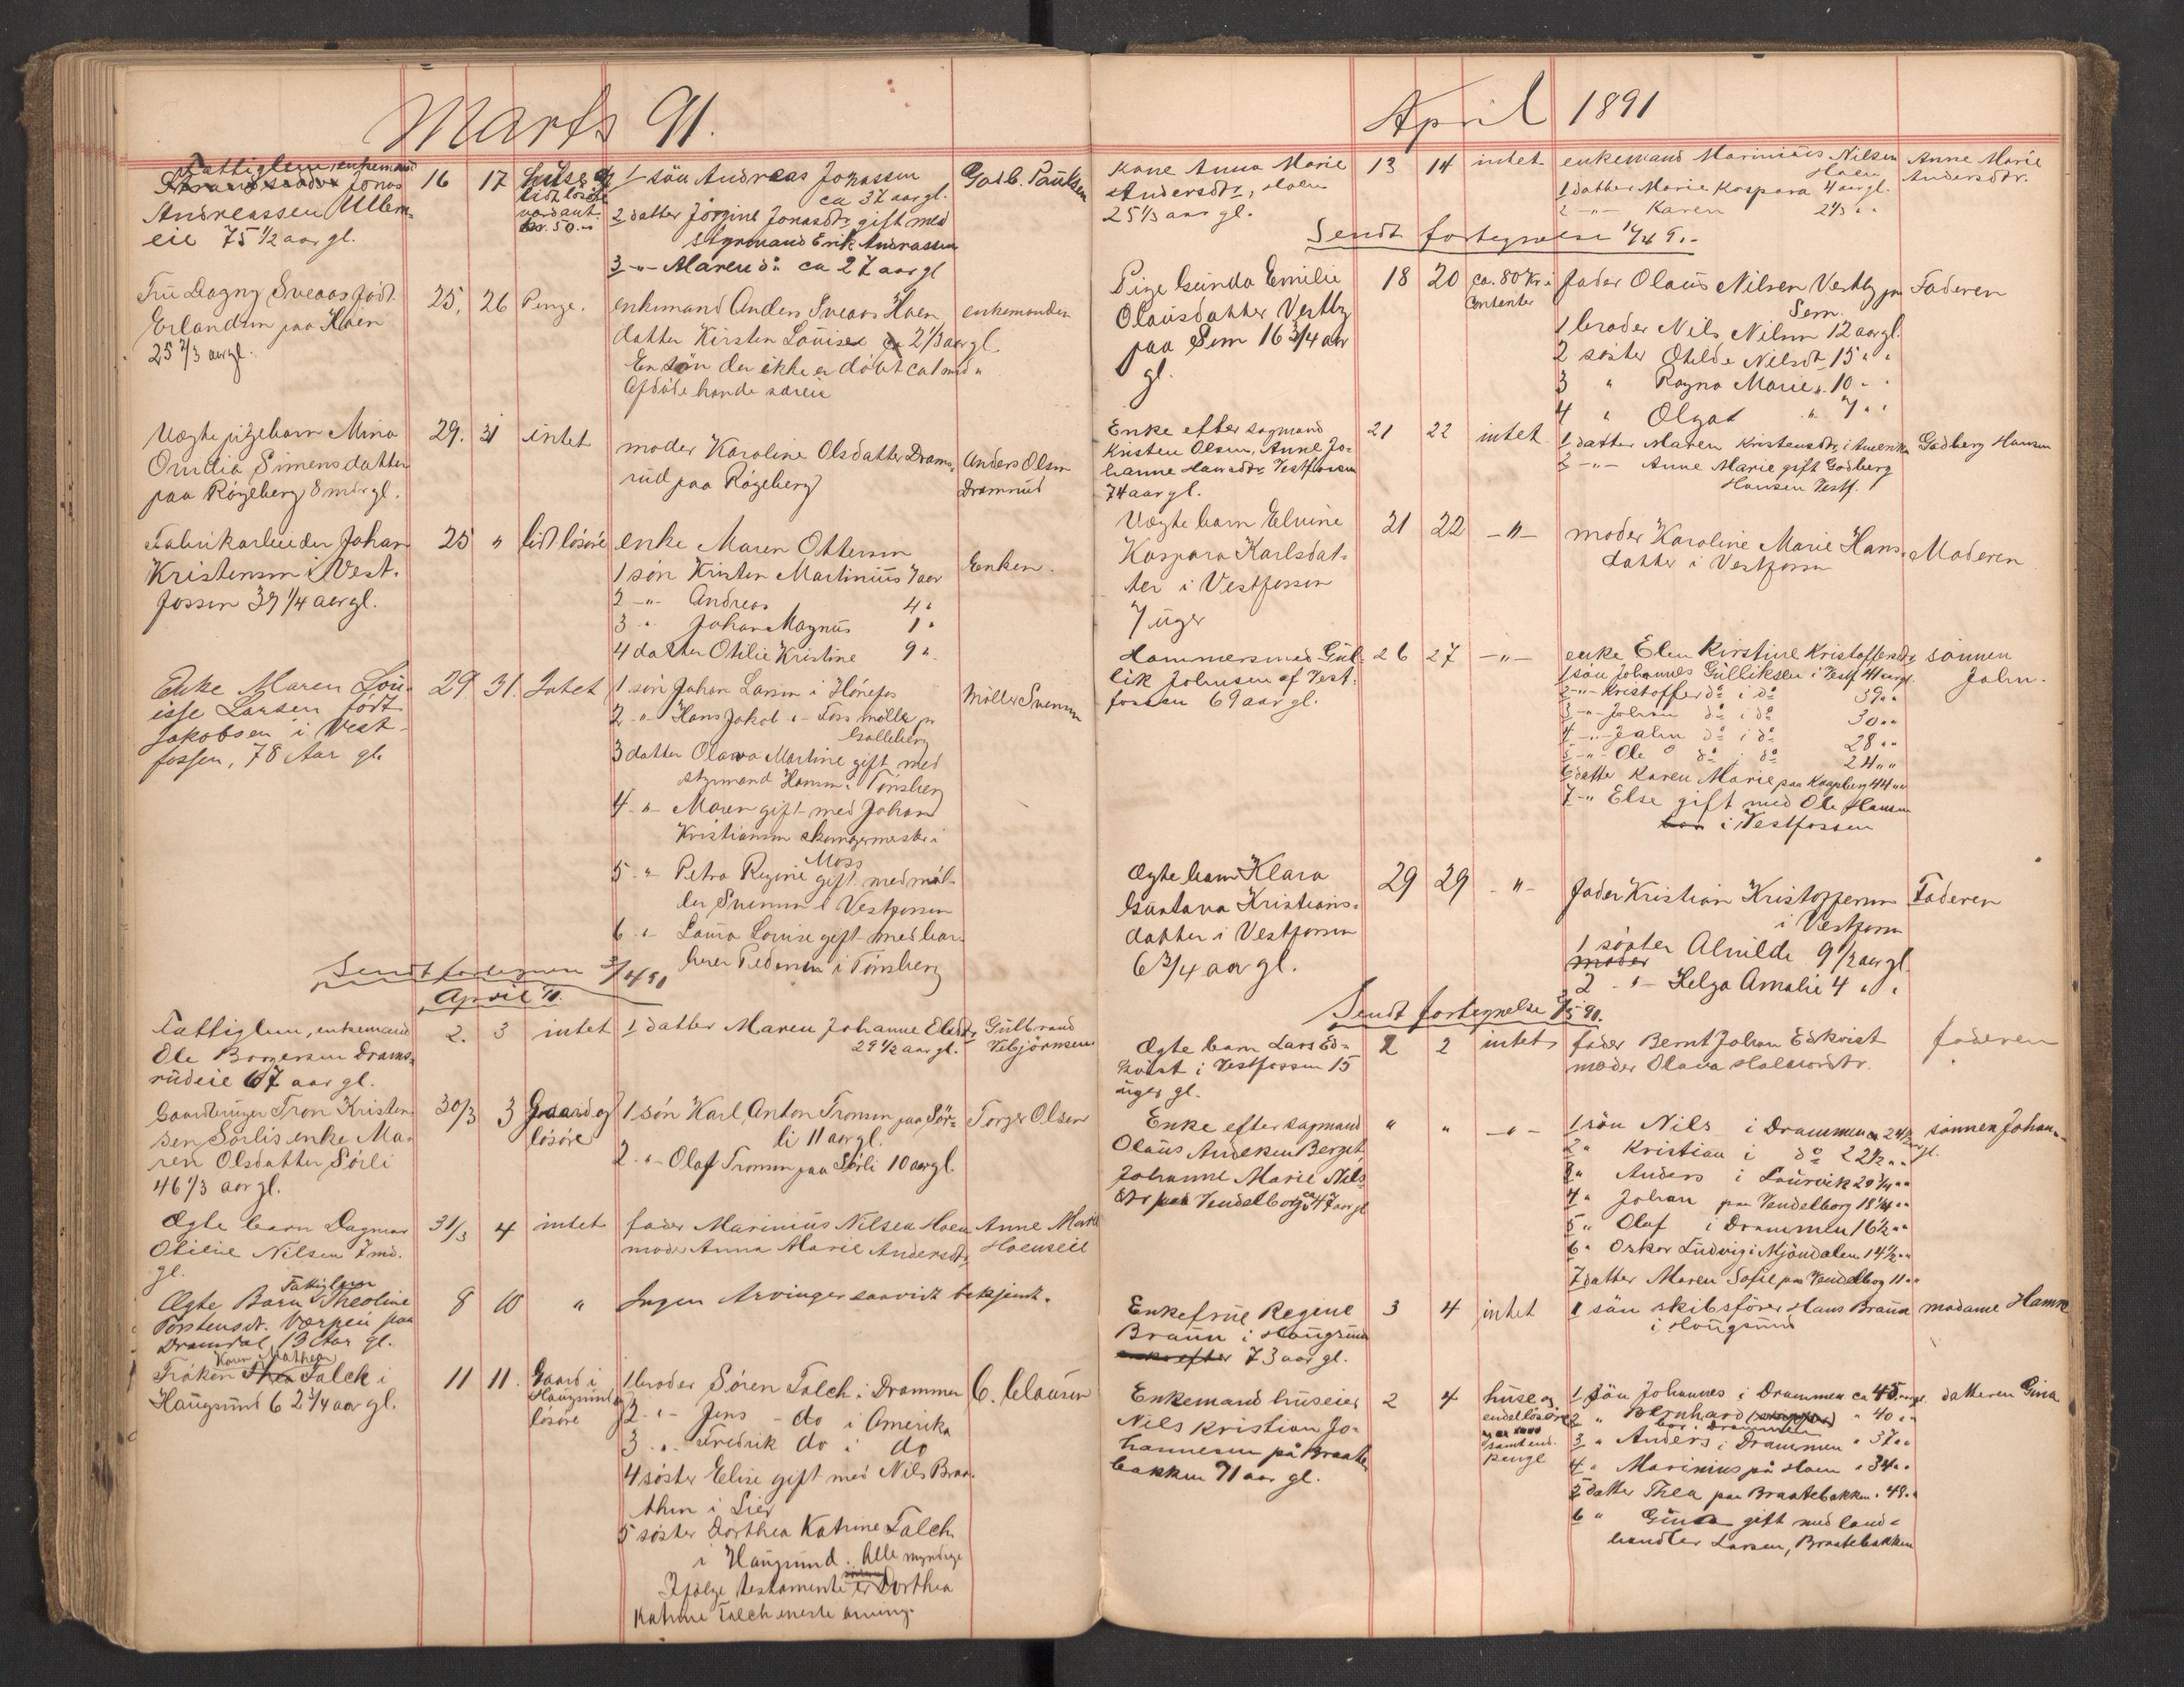 Marts 91.
Fattiglem, enkemand
Jonas
Andreassen Ullern-
eie 75 1/2 aar gl.
16 17
Huse og
lidt løsøre
værd ant.
Kr. 50.-
1 søn Andreas Jonassen
ca 37 aar gl.
2 datter Jörgine Jonasdtr, gift med
Styrmand Erik Andreassen
3 -"- Maren do ca 27 aar gl
Godb. Paulsen
Fru Dagny Sveaas født
Erlandsen paa Hoen
25 2/3 aar gl.
25. 26 Penge.
enkemand Anders Sveaas Hoen
datter Kirsten Louise 2 1/3 aar gl
En søn der ikke er døbt ca 1 md "
Afdøde havde særeie
enkemanden
Uægte pigebarn Mina
Ovidia Simensdatter
paa Røgeberg 8 mdr gl.
29. 31 intet
moder Karoline Olsdatter Drams-
rud paa Røgeberg
Anders Olsen
Dramrud
Fabrikarbeider Johan
Kristensen i Vest-
fossen 39 1/4 aar gl.
25 " lidt løsøre
enke Maren Ottersen
1 søn Kristen Martinius 7 aar
2 -"- Andreas 4 "
3 " Johan Magnus 1 "
4 datter Otilie Kristine 9 "
Enken.
Enke Maren Lou-
isse Larsen født
Jakobsen i Vest-
fossen, 78 Aar gl.
29 31. Intet
1 søn Johan Larsen i Hønefos
2 -"- Hans Jakob -"- Foss mølle pr
Galleberg
3 datter Olava Martine gift med
styrmand Hansen i Tønsberg
4 -"- Maren gift med Johan
Kristiansen i
Moss
5 -" Petra Regine gift med møl-
ler Svensen i Vestfossen
6 -"- Laura Louise gift med
Pedersen i Tønsberg
Møller Svensen
Sendt fortegnelse 2/4 91
April 91.
Fattiglem, enkemand
Ole Borgersen Drams-
rudeie 67 aar gl.
2. 3 intet
1 datter Maren Johanne Olesdtr
29 1/2 aar gl.
Gulbrand
Vebjørnsen
Gaardbruger Tron Kristen-
sen Sørlis enke Ma-
ren Olsdatter Sørli
46 1/3 aar gl.
30/3 3 Gaard og
løsøre
1 søn Karl Anton Tronsen paa Sør-
li 11 aar gl.
2 -"- Olaf Tronsen paa Sørli 10 aar gl.
Torger Olsen
Ægte barn Dagmar
Otilie Nilsen 7 md.
gl.
31/3 4 intet
fader Marinius Nilsen Hoen
moder Anna Marie Andersdtr,
Anne Marie
Hoenseie
Fattiglem
Ægte Barn Theoline
Torstensdr. Værpen paa
Dramdal 13 Aar gl.
8 10 "
Ingen Arvinger saavidt bekjendt.
Karen Mathea
Frøken Thea Falch i
Haugsund 62 3/4 aar gl.
11 11.
Gaard i
Haugsund og
løsøre
1 broder Søren Falch i Drammen
2 -"- Jens - do i Amerika
3 -"- Fredrik do i do
4 søster Elise gift med Nils Braa-
then i Lier
5 søster Dorthea Katrine Falch
i Haugsund. Alle myndige
Ifølge testamente er Dorthea
Katrine Falch eneste arving.
C. Clausen
April 1891
Kone Anna Marie
Andersdtr, Hoen
25 1/3 aar gl.
13 14 intet
enkemand Marinius Nilsen
Hoen
1 datter Marie Kaspara 4 aar gl.
2 -"- Karen 2 1/3 " "
Anne Marie
Andersdtr.
Sendt fortegnelse
Pige Gunda Emilie
Olausdatter Vestby
paa Sem 16 3/4 aar
gl.
18 20 ca. 80 Kr i
Contanter
fader Olaus Nilsen Vestby paa
Sem.
1 broder Nils Nilsen 12 aar gl.
2 søster Otilde Nilsdt 15 " "
3 " Ragna Marie " 10 " "
4 " Olga " 7 " "
Faderen
Enke efter sagmand
Kristen Olsen, Anne Jo-
hanne Hansdtr Vestfossen
74 aar gl.
21 22 intet
1 datter Maren Kristensdtr, i Amerika
2 -"- Anne Marie gift Godberg
Hansen Vestf.
Godberg Hansen
Uægte barn Elvine
Kaspara Karlsdat-
ter i Vestfossen
7 uger
21 22 -"-
moder Karoline Marie Hans-
datter i Vestfossen
Moderen
Hammersmed Gul-
lik Johnsen af Vest-
fossen 69 aar gl.
26 27 -"-
enke Elen Kirstine Kristoffersdtr
1 søn Johannes Gulliksen i Vestf 41 aar gl.
2 -"- Kristoffer do i do 39 " "
3 -"- Johan do i do 30 " "
4 -"- John do i do 28 " "
5 -"- Ole do i do 24 " "
6 datter Karen Marie paa Knapberg 44 " "
7 -" Else gift med Ole Hansen
i Vestfossen
sønnen
John.
Ægte barn Klara
Gustava Kristians-
datter i Vestfossen
6 3/4 aar gl.
29 29 -"-
fader Kristian Kristoffersen
i Vestfossen
1 søster Alvilde 9 1/2 aar gl.
2 -"- Helga Amalie 4 " "
Faderen
Sendt fortegnelse 2/5 91.
Ægte barn Lars Ed-
kvist i Vestfossen 15
uger gl.
2 2 intet
fader Bernt Johan Edkvist
moder Olava Halvorsdtr.
faderen
Enke efter sagmand
Olaus Andersen Berget,
Johanne Marie Nils-
dtr paa Vendelborg ca 47 aar gl
" " -"-
1 søn Nils i Drammen ca 24 1/2 aar gl.
2 " Kristian i do 22 1/2 " "
3 " Anders i Laurvik 20 1/4 " "
4 " Johan paa Vendelborg 18 1/4 " "
5 " Olaf i Drammen 16 1/2 " "
6 " Oskar Ludvig i Mjøndalen 14 1/2 " "
7 datter Maren Sofie paa Vendelborg 11 " "
sønnen Johan
Enkefrue Regine
Braun i Hougsund
enke efter 73 aar gl.
3 4 intet
1 søn skibsfører Hans Braun
i Hougsund
madame Hamre
Enkemand huseier
Nils Kristian Jo-
hannesen på Braate-
bakken 71 aar gl.
2 4 huse og
endel løsøre
samt end.
penge
1 søn Johannes i Drammen ca 45 aar gl
2 " Bernhard " 40 " "
bor i Drammen
3 " Anders i Drammen " 37 " "
4 " Marinius på Hoen " 34 " "
5 datter Thea paa Braatebakken " 49 "
6 " Gina gift med land-
handler Larsen, Braatebakken
datteren Gina